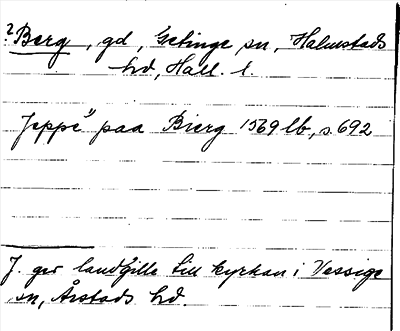 ? Berg, gd, Getinge sn, Halmstads
hd, Hall. l.
Jeppe" paa Bierg 1569 lb, s 692
J. ger landgille till kyrkan i Vessige
sn, Årstads hd.